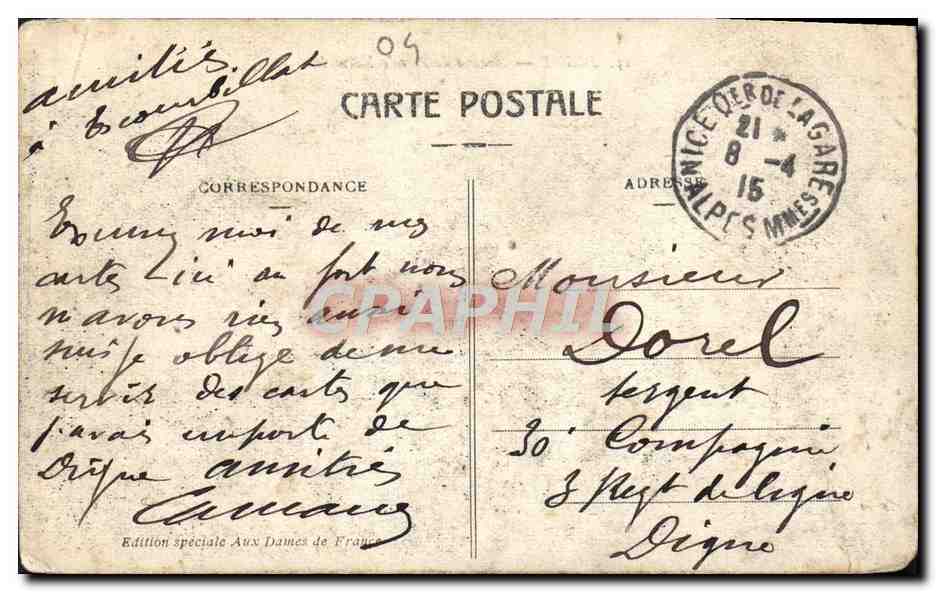 04
amitiés
à Escourbillat
CARTE POSTALE
NICE QER DE LA GARE
21 *
8 -4
15
ALPES MMES
CORRESPONDANCE
ADRESSE
Excusez moi de mes
cartes ici au fort nous
n'avons rien aussi
suis je oblige de me
servir des cartes que
j'avais emporté de
Digne amitiés
Monsieur
Dorel
sergent
30e Compagnie
3 Regt de ligne
Digne
CPAPHIL
Edition spéciale Aux Dames de France